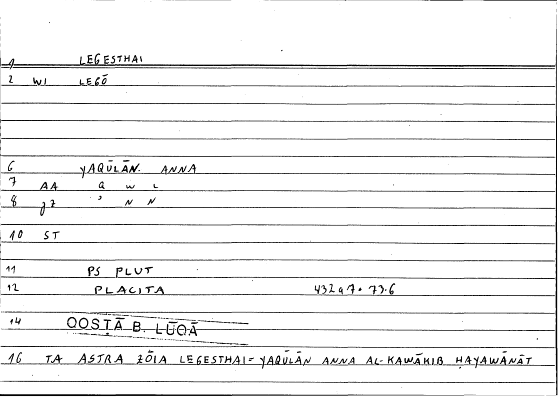 1 LEGESTHAI
2 WI LEGŌ
6 YAQŪLĀN. ANNA
7 AA Q W L
8 JZ ʾ N N
10 ST
11 PS PLUT
12 PLACITA 432a7. 73.6
14 QOSṬĀ B. LŪQĀ
16 TA ASTRA ZŌIA LEGESTHAI= YAQŪLĀN ANNA AL-KAWĀKIB ḤAYAWĀNĀT